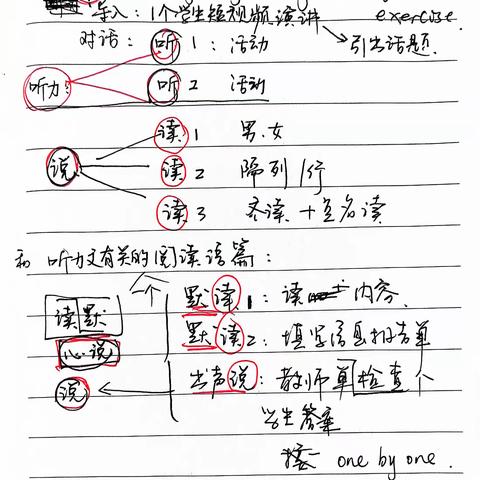 导入：1个学生短视频演讲 exercise
对话：听1：活动 引出话题.
听力： 听2 活动
读1 男.女
说 读2 隔列/行
读3 齐读+点名读
和听力文有关的阅读语篇：
一个
读默 默读1：读 内容.
心说 默读2：填写信息报告单
说 出声说：教师单检查个
学生答案
接 one by one.